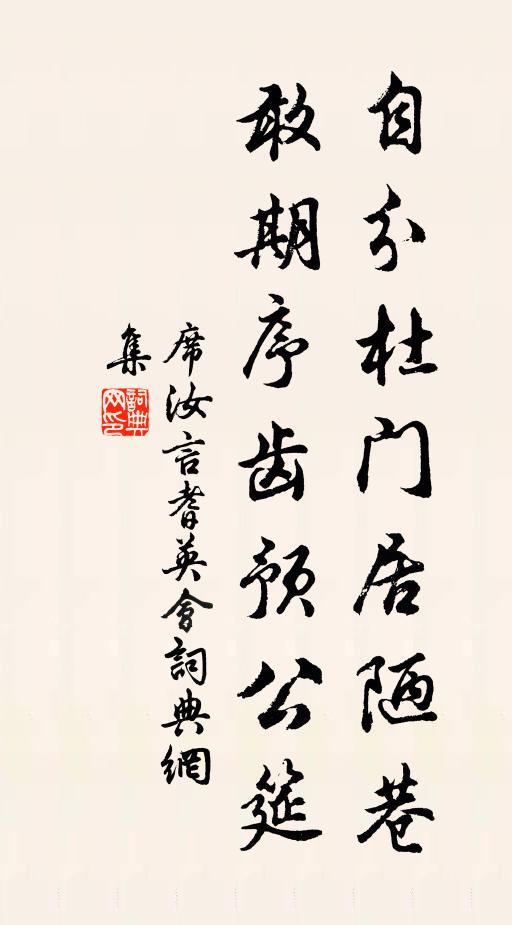 自分杜门居陋巷
敢期序齿预公筵
席汝言耆英會詞典網
集
詞典网印